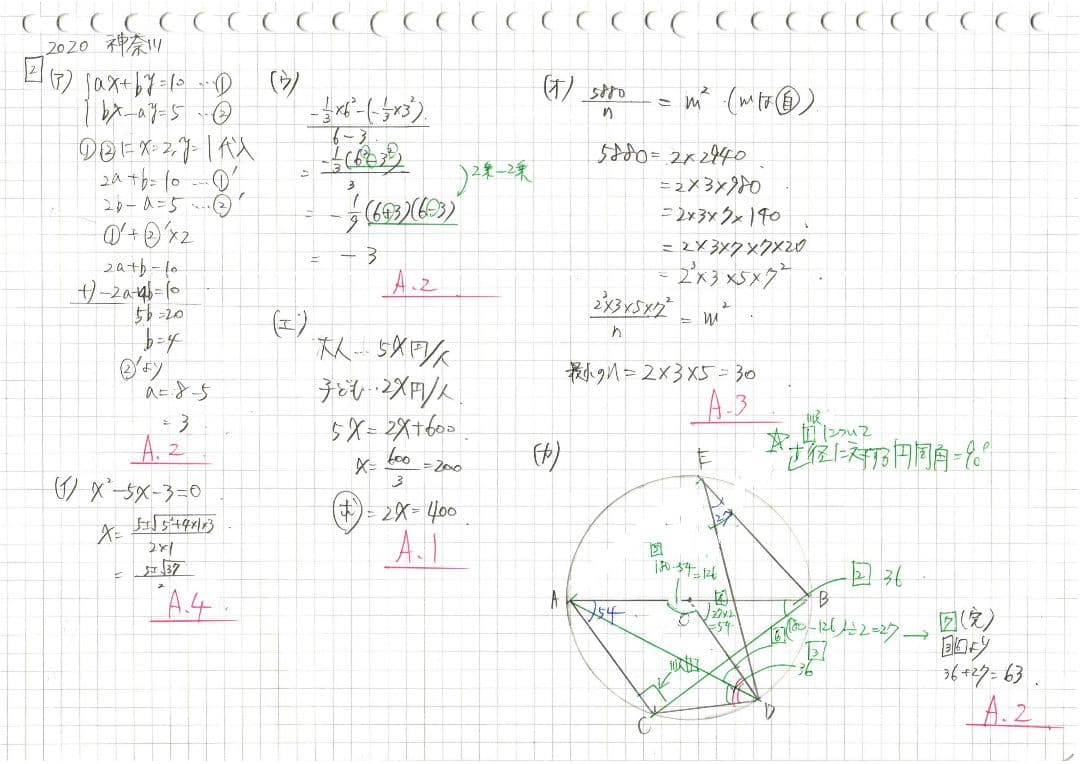 2020 神奈川
2
(ア) { ax+by=10 …①
{ bx-ay=5 …②
①②に x=2, y=1代入
2a+b=10 …①'
2b-a=5 …②'
①'+②'×2
2a+b=10
+)-2a+4b=10
5b=20
b=4
②'より
a=8-5
=3
A.2
(イ) x²-5x-3=0
x=5±√5²+4×1×3
2×1
=5±√37
2
A.4
(ウ)
-1/3×6²-(-1/3×3²)
6-3
= -1/3(6²-3²)
3
2乗-2乗
= -1/9(6+3)(6-3)
= -3
A.2
(エ)
大人…5x円/人
子ども…2x円/人
5x=2x+600
x=600/3=200
求=2x=400
A.1
(オ) 5880/n = m² (mは自)
5880=2×2940
=2×3×980
=2×3×7×140
=2×3×7×7×20
=2³×3×5×7²
2³×3×5×7²/n = m²
最小のn=2×3×5=30
A.3
(カ)
直径に対する円周角=90°
E
27
5
180-54=126
A
54
O
4
27×2
=54
B
2 36
6 (180-126)÷2=27
3
36
C
D
7(完)
3 6より
36+27=63
A.2